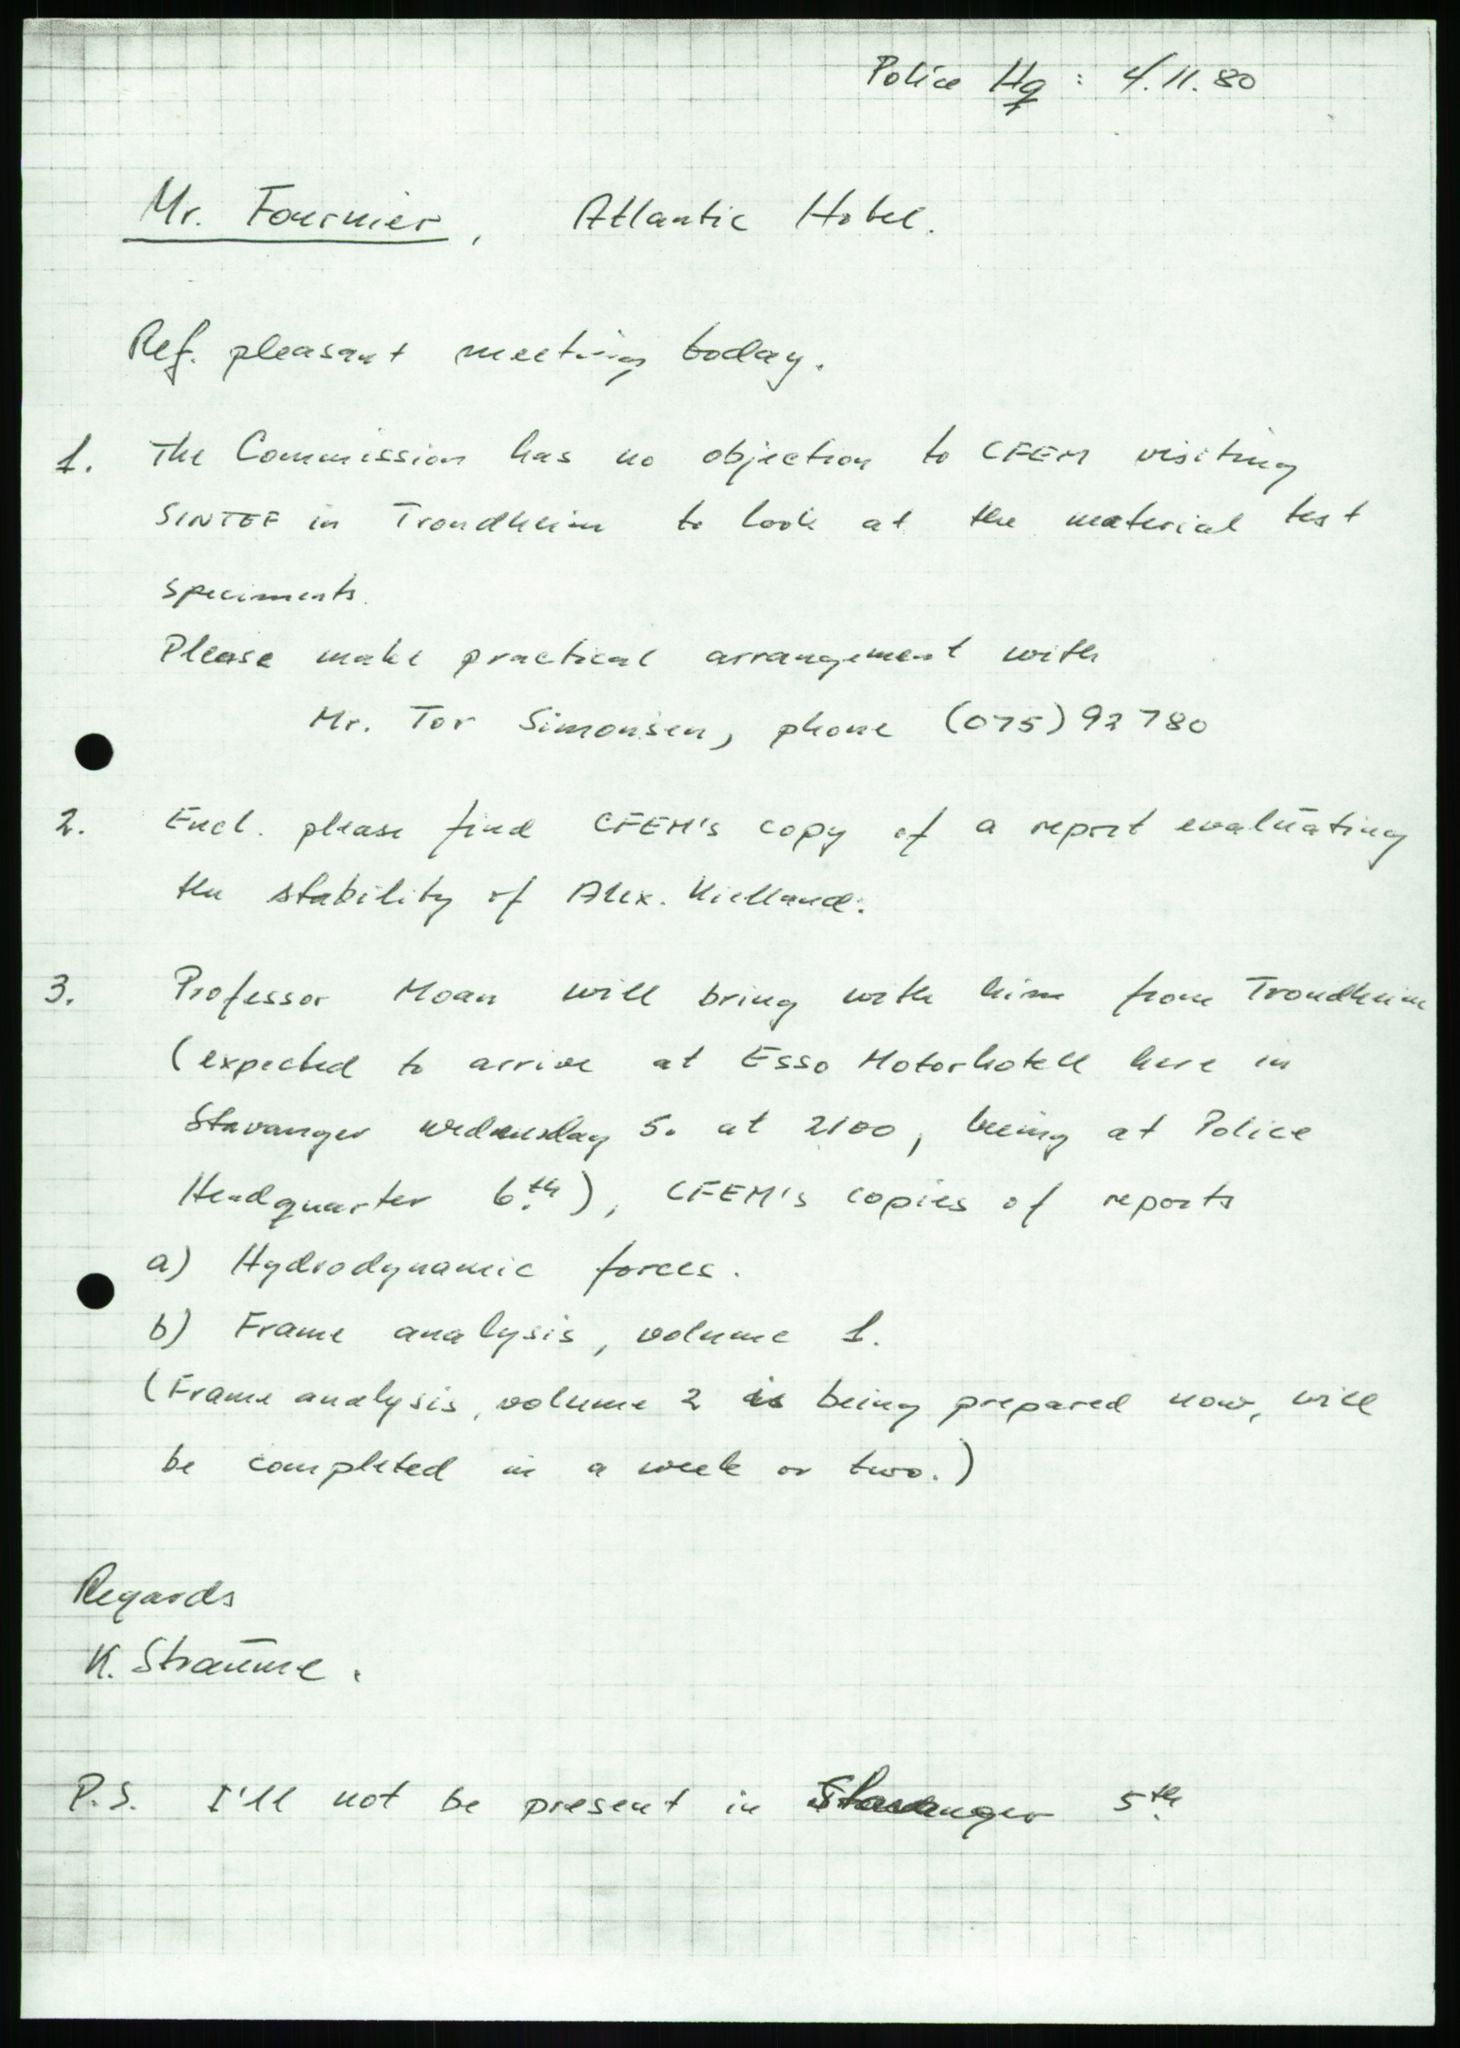 Police Hq : 4.11.80
Mr. Fournier, Atlantic Hotel.
Ref. pleasant meeting today.
1. The Commission has no objection to CFEM visiting
SINTEF in Trondheim to look at the material test
speciments.
Please make practical arrangement with
Mr. Tor Simonsen, phone (075) 92780
2. Encl. please find CFEM's copy of a report evaluating
the stability of Alex. Kielland.
3. Professor Moan will bring with him from Trondheim
(expected to arrive at Esso Motorhotell here in
Stavanger wednesday 5. at 2100, being at Police
Headquarter 6.th), CFEM's copies of reports
a) Hydrodynamic forces.
b) Frame analysis, volume 1.
(Frame analysis, volume 2 is being prepared now, will
be completed in a week or two.)
Regards
K. Straume.
P.S. I'll not be present in Stavanger 5.th